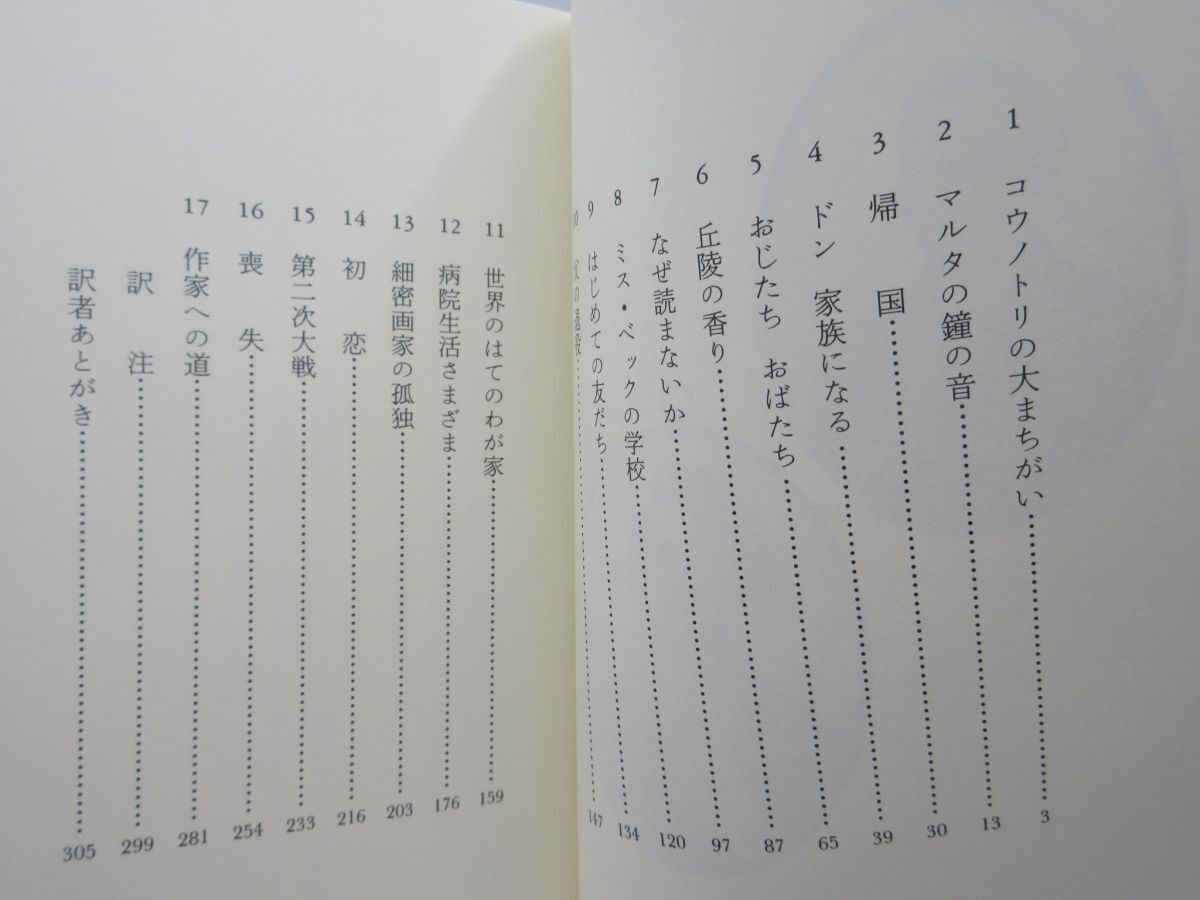 1 コウノトリの大まちがい……3
2 マルタの鐘の音……13
3 帰国……30
4 ドン 家族になる……39
5 おじたち おばたち……65
6 丘陵の香り……87
7 なぜ読まないか……97
8 ミス・ベックの学校……120
9 はじめての友だち……134
10 の退役……147
11 世界のはてのわが家……159
12 病院生活さまざま……176
13 細密画家の孤独……203
14 初恋……216
15 第二次大戦……233
16 喪失……254
17 作家への道……281
訳注……299
訳者あとがき……305